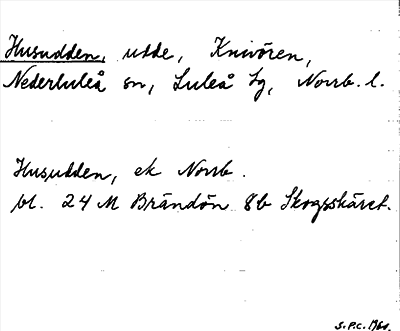 Husudden, udde, Knivören,
Nederluleå sn, Luleå tg, Norrb. l.
Husudden, ek Norrb.
bl. 24 M Brändön 8b Skogsskäret.
S.P.C.